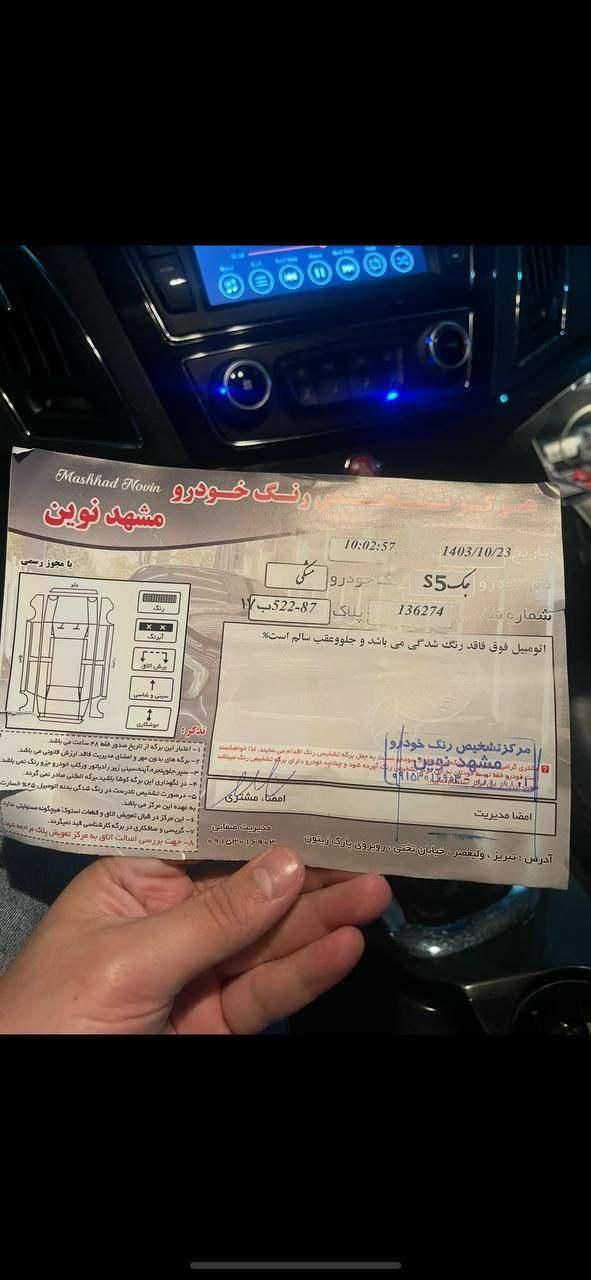 Mashhad Novin
مرکز تشخیص رنگ خودرو
مشهد نوین
با مجوز رسمی
تاریخ 1403/10/23
10:02:57
خودرو جک S5
رنگ خودرو مشکی
شماره 136274
پلاک 87-522ب17
اتومبیل فوق فاقد رنگ شدگی می باشد و جلووعقب سالم است%
جلو
رنگ
آبرنگ
برش اتاق
سینی و شاسی
جوشکاری
تذکر:
1- اعتبار این برگه از تاریخ صدور فقط 48 ساعت می باشد.
2- برگه های بدون مهر و امضای مدیریت فاقد ارزش قانونی می باشد.
3- سپر،جلوپنجره،آینه،سینی زیر رادیاتور ورکاب خودرو جزو رنگ نمی باشد.
4- در نگهداری این برگه کوشا باشید،برگه المثنی صادر نمی گردد.
5- درصورت تشخیص نادرست در رنگ شدگی بدنه اتومبیل 25% خسارت
به عهده این مرکز می باشد.
6- این مرکز در قبال تعویض اتاق و قطعات استوک هیچگونه مسئولیتی ندارد.
7- گریسی و صافکاری در برگه کارشناسی قید نمیگردد.
8- جهت بررسی اصالت اتاق به مرکز تعویض پلاک مراجعه
مرکز تشخیص رنگ خودرو
مشهد نوین
امضاء مشتری
امضا مدیریت
مدیریت صفایی
09153016903
آدرس : تبریز ، ولیعصر ، خیابان تختی ، روبروی پارک زیتون